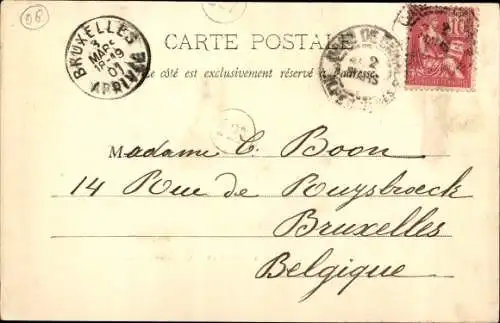 06
BRUXELLES
3
MARS
18-19
01
ARRIVÉE
CARTE POSTALE
Ce côté est exclusivement réservé à l'adresse.
2
10
Madame C. Boon
14 Rue de Ruysbroeck
Bruxelles
Belgique